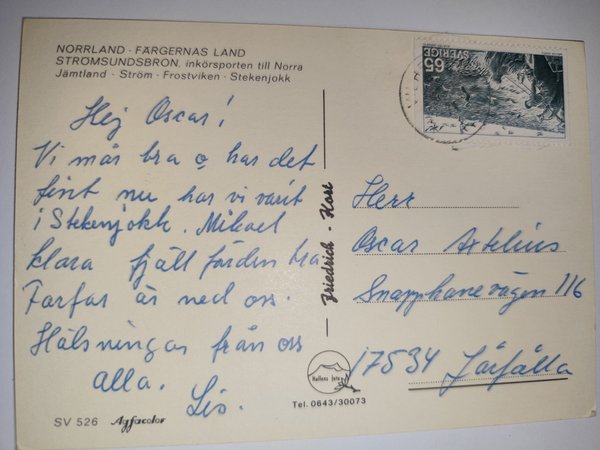 NORRLAND - FÄRGERNAS LAND
STRÖMSUNDSBRON, inkörsporten till Norra
Jämtland - Ström - Frostviken - Stekenjokk
Hej Oscar!
Vi mår bra o har det
fint nu har vi varit
i Stekenjokk. Mikael
klara fjäll färden bra
Farfar är med oss.
Hälsningar från oss
alla.
Lis.
SV 526 Agfacolor
Friedrich - Kort
Hallens foto
Tel. 0643/30073
SVERIGE
65
Herr
Oscar Axtelius
Snapphanevägen 116
17534 Järfälla